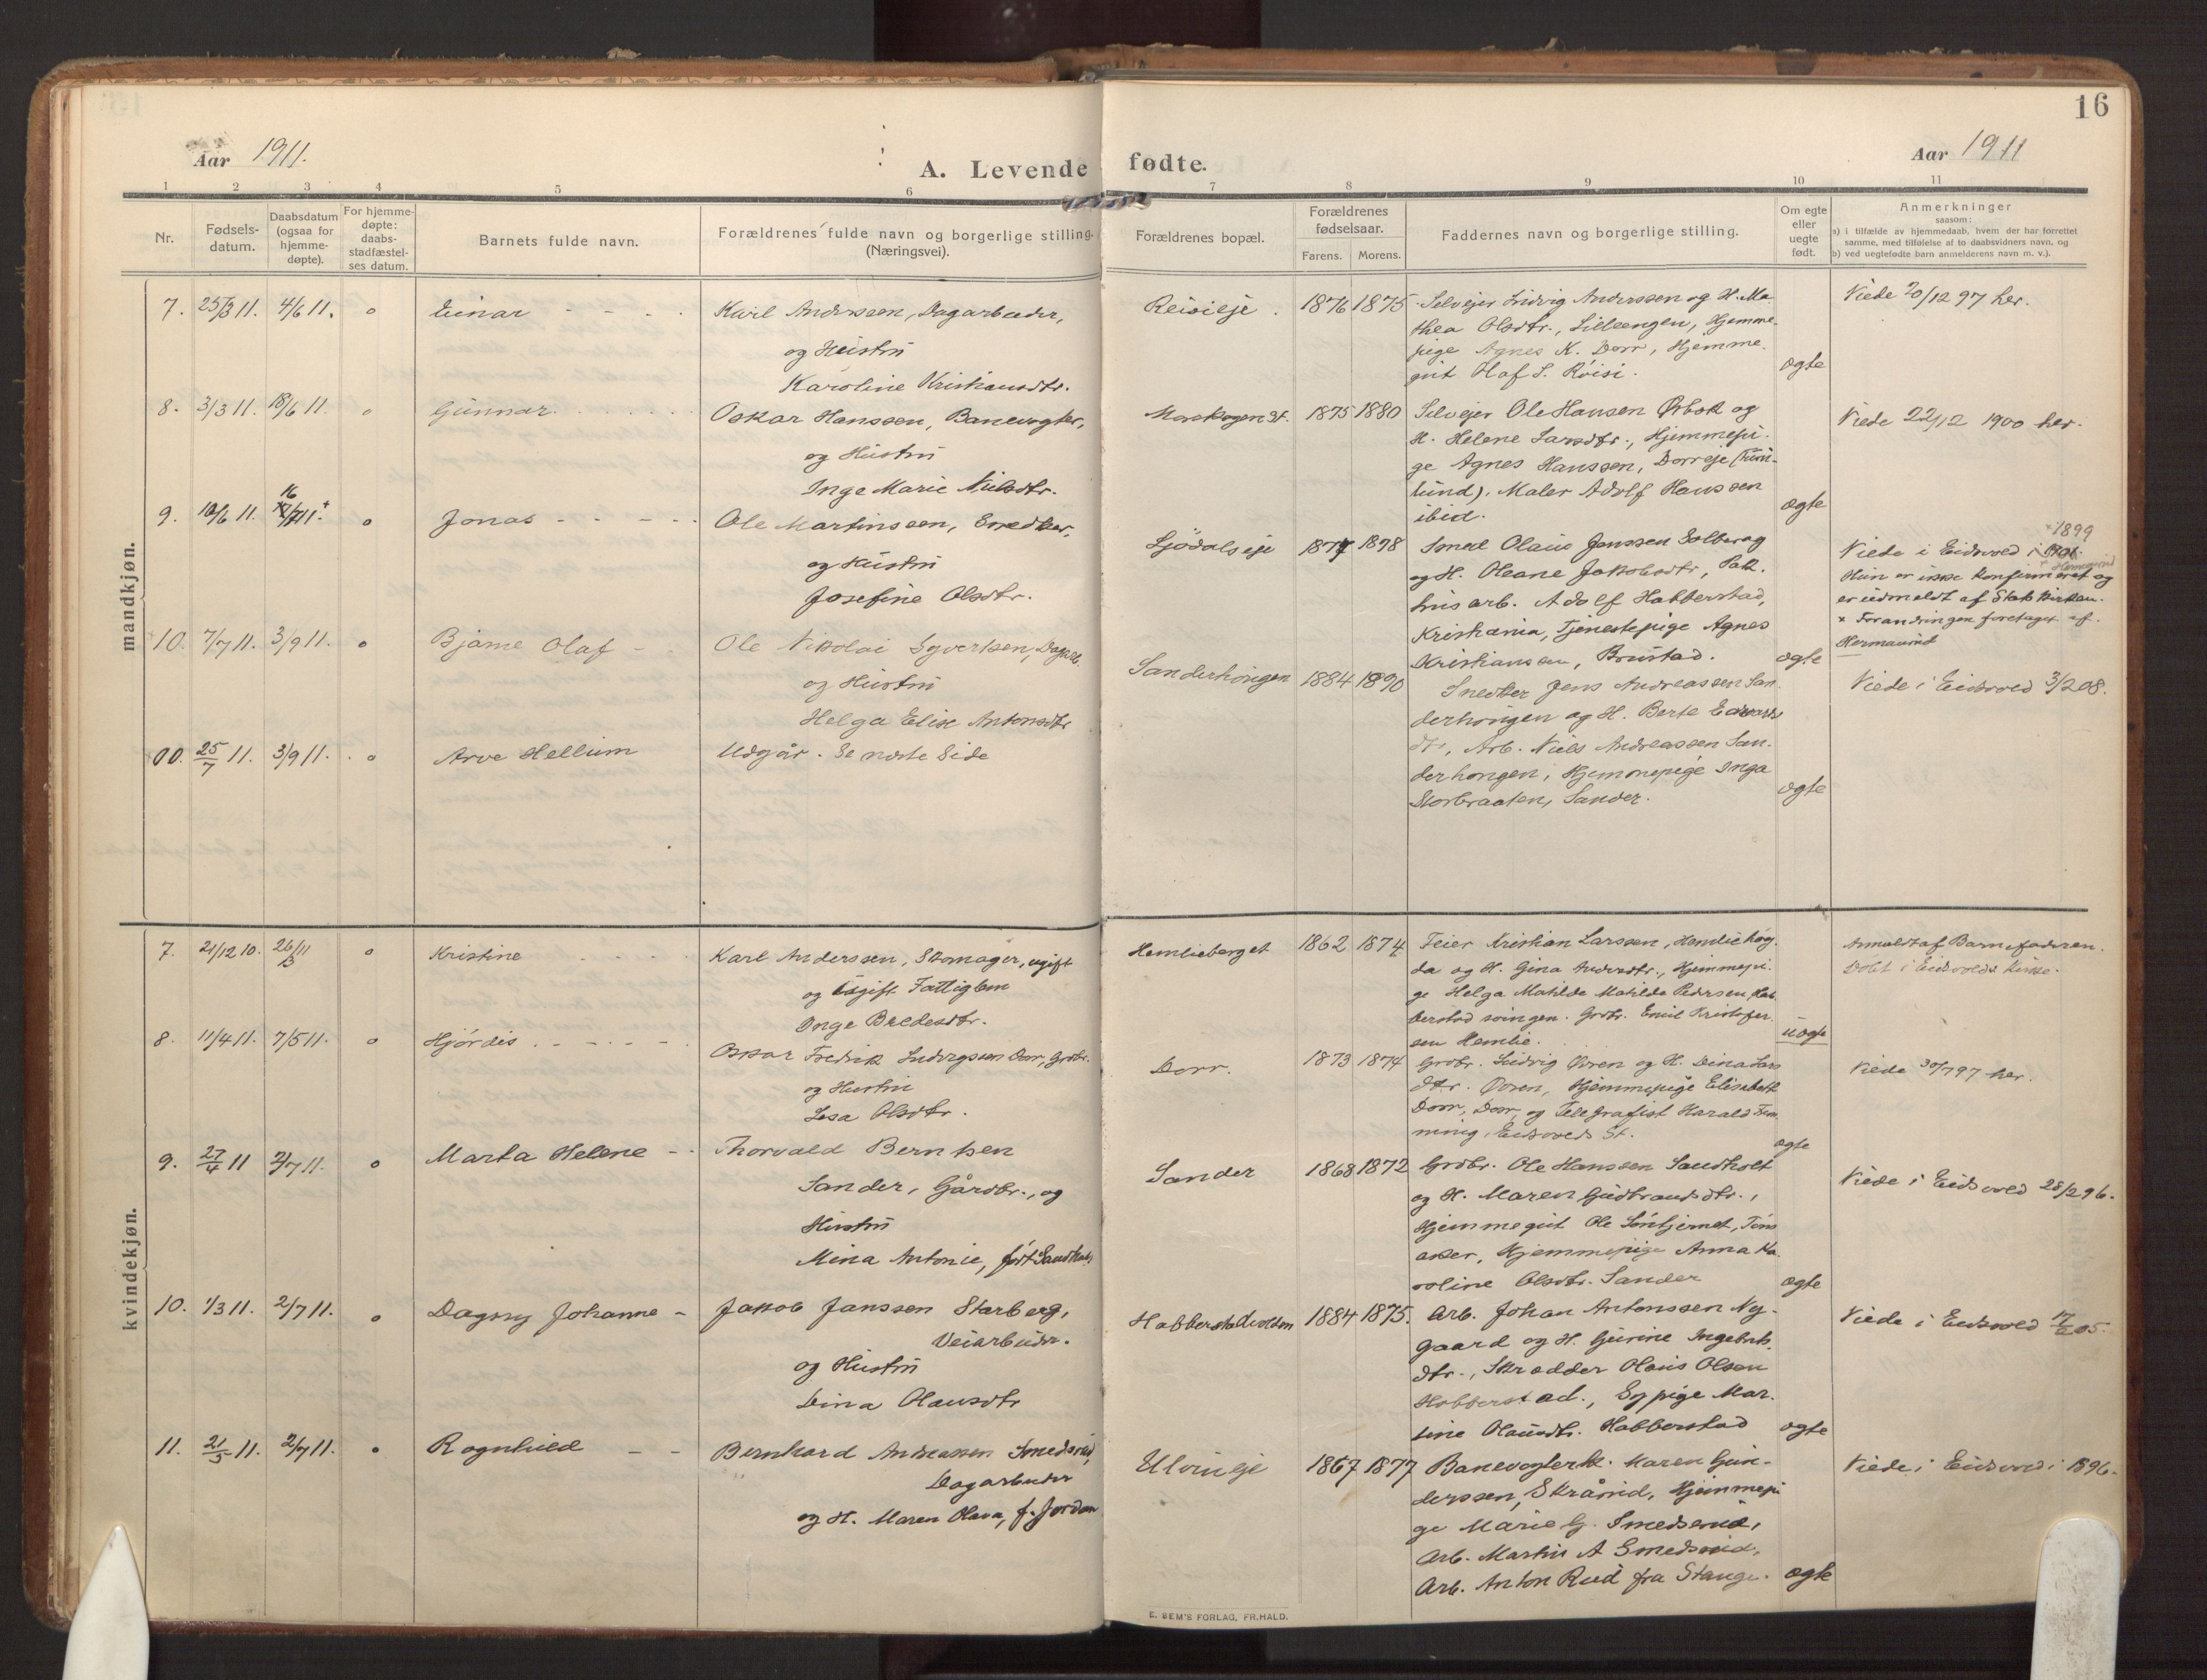 16
Aar 1911.
A. Levende fødte.
Aar 1911
1 2 3 4 5 6 7 8 9 10 11
Nr.
Fødsels-
datum.
Daabsdatum
(ogsaa for
hjemme-
døpte).
For hjemme-
døpte:
daabs-
stadfæstel-
ses datum.
Barnets fulde navn.
Forældrenes fulde navn og borgerlige stilling.
(Næringsvei).
Forældrenes bopæl.
Forældrenes
fødselsaar.
Farens. Morens.
Faddernes navn og borgerlige stilling.
Om egte
eller
uegte
født.
Anmerkninger
saasom:
a) i tilfælde av hjemmedaab, hvem der har forrettet
samme, med tilføielse af to daabsvidners navn, og
b) ved uegtefødte barn anmelderens navn m. v.).
mandkjøn.
7. 25/3 11. 4/6 11. o Einar
Karl Anderssen, Dagarbeider,
og Hustru
Karoline Kristiansdtr.
Reisieje. 1876 1875
Selvejer Ludvig Anderssen og H. Ma-
thea Olsdtr., Lilleengen, Hjemme-
pige Agnes K. Dorr, Hjemme-
gut Olaf S. Röisi.
ægte
Viede 20/12 97 her.
8. 3/3 11. 18/6 11. o Gunnar
Oskar Hanssen, Banevogter,
og Hustru
Inge Marie Nilsdtr.
Morskogen St. 1875 1880
Selvejer Ole Hansen Ørbak og
H. Helene Larsdtr., Hjemmepi-
ge Agnes Hanssen, Dorreje
lund). Maler Adolf Hanssen
ibid.
ægte
Viede 22/12 1900 her.
9. 10/6 11. 16/7 11.+ o Jonas
Ole Martinssen, Snedker,
og Hustru
Josefine Olsdtr.
Sjödalseje 1877 1878
Smed Olaus Janssen Solberg
og H. Oleane Jakobsdtr, Pak-
husarb. Adolf Habberstad,
Kristiania, Tjenestepige Agnes
Kristiansen, Brustad.
ægte
+ 1899
Viede i Eidsvold i 1901.
Hun er ikke konfirmeret og
er udmeldt af Statskirken.
+ Forandringen foretaget af
Hermanrud
10. 7/7 11. 3/9 11. o Bjarne Olaf
Ole Nikolai Syvertsen, Dagarb.
og Hustru
Helga Elise Antonsdtr
Sanderhaugen 1884 1890
Snedker Jens Andreassen San-
derhongen og H. Berte
dtr, Arb. Niels Andreassen San-
derhongen, Hjemmepige Inga
Storbraaten, Sander.
ægte
Viede i Eidsvold 3/2 08.
00. 25/7 11. 3/9 11. o Arve Hellum
Udgår. Se næste Side
kvindekjøn.
7. 21/12 10. 26/3 11 o Kristine
Karl Anderssen, Skomager, ugift
og ugift Fattiglem
Inge Bredesdtr.
Hemlieberget 1862 1874
Feier Kristian Larssen, Hemliehög-
da og H. Gina Andrsdtr., Hjemmepi-
ge Helga Matilde Matilde Pedersen, Hab-
berstad svingen. Grdbr. Emil Kristofer-
sen Hemlie.
uægte
Anmeldt af Barnefaderen.
Döbt i Eidsvolds Kirke.
8. 11/4 11. 7/5 11. o Hjördis
Oskar Fredrik Ludvigssen Dorr, Grdbr.
og Hustru
Lesa Olsdtr.
Dorr. 1873 1874
Grdbr. Ludvig Øvren og H. Dina Lars
dtr. Øvren, Hjemmepige Elisabeth
Dorr, Dorr, og Telegrafist Harald
ning, Eidsvold St.
ægte
Viede 30/7 97 her.
9. 27/4 11 2/7 11. o Marta Helene
Thorvald Berntsen
Sander, Gårdbr., og
Hustru
Mina Antonie, født Sandholt
Sander 1868 1872
Grdbr. Ole Hanssen Sandholt
og H. Maren Gudbrandsdtr.,
Hjemmegut Ole Löntjernet, Töns-
aker, Hjemmepige Anna Ka-
roline Olsdtr. Sander
ægte
Viede i Eidsvold 28/2 96.
10. 1/3 11. 2/7 11. o Dagny Johanne
Jakob Janssen Starberg,
Veiarbeider.
og Hustru
Dina Olausdtr
Habberstadvolden 1884 1875.
Arb. Johan Antonssen Ny-
gaard og H. Gurine Ingebrts.
dtr., Skrædder Olaus Olsen
Habberstad., Sypige Mar-
tine Olausdtr. Habberstad
ægte
Viede i Eidsvold 05.
11. 21/5 11. 2/7 11. o Ragnhild
Bernhard Andreassen Smedsrud,
Dagarbeider
og H. Maren Olava, f. Jordan
Ulvineje 1867 1877
Banevogterk. Maren Gun-
derssen, Skårud, Hjemmepi
ge Marie G. Smedsrud,
Arb. Martin A Smedsrud,
Arb. Anton Rud fra Stange.
ægte
Viede i Eidsvold i 1896.
E. SEM'S FORLAG, FR.HALD.